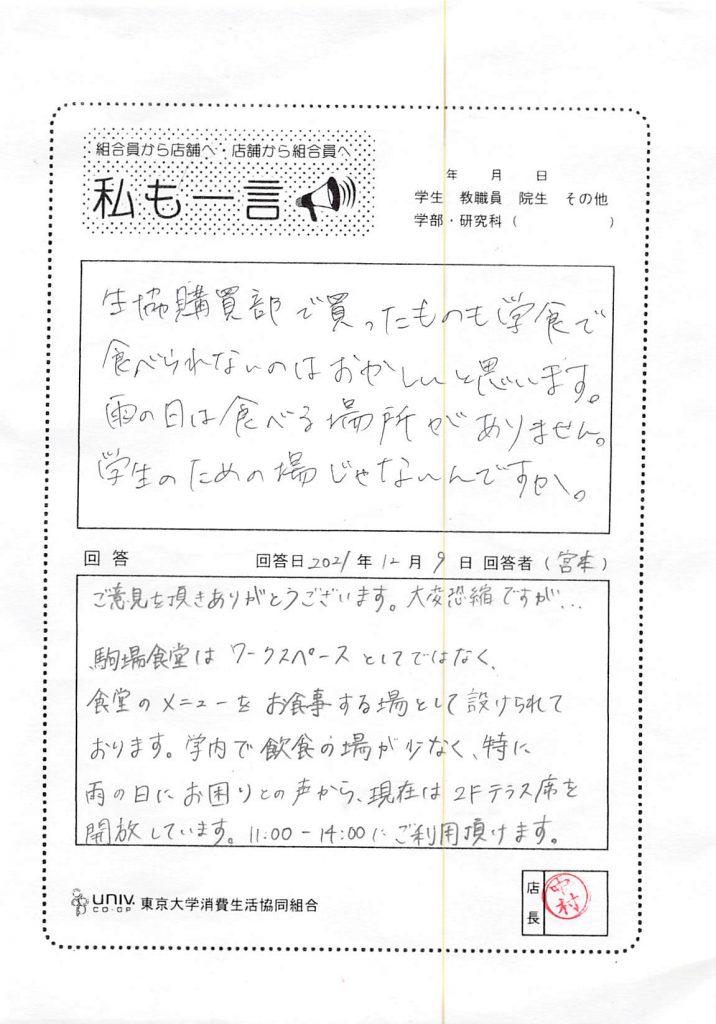 組合員から店舗へ・店舗から組合員へ
私も一言
年 月 日
学生 教職員 院生 その他
学部・研究科（ ）
生協購買部で買ったものも学食で
食べられないのはおかしいと思います。
雨の日は食べる場所がありません。
学生のための場じゃないんですか。
回答 回答日2021年12月9日 回答者（宮本）
ご意見を頂きありがとうございます。大変恐縮ですが…
駒場食堂はワークスペースとしてではなく、
食堂のメニューをお食事する場として設けられて
おります。学内で飲食の場が少なく、特に
雨の日にお困りとの声から、現在は2Fテラス席を
開放しています。11:00-14:00にご利用頂けます。
UNIV. CO-OP 東京大学消費生活協同組合
店長 中村